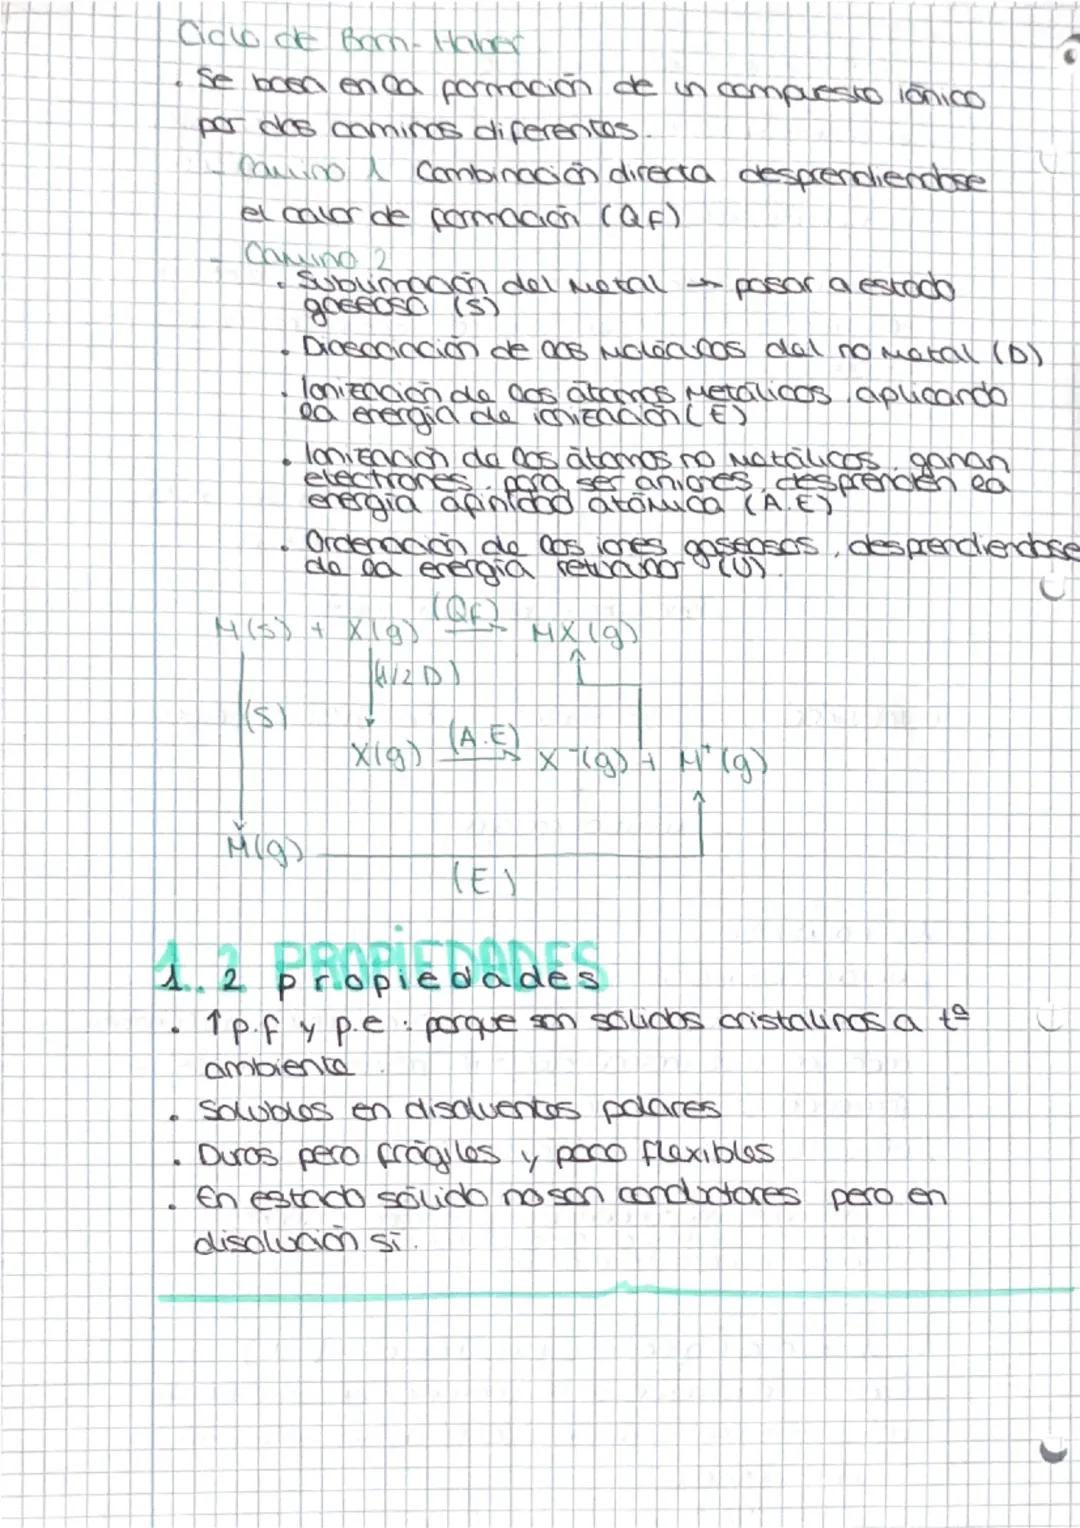 Ciclo de Born-Haber
. Se basa en la formación de un compuesto iónico
por dos caminos diferentes.
- Camino 1 Combinación directa desprendiendose
el calor de formación (QF)
- Camino 2
. Sublimación del metal → pasar a estado
gaseoso (S)
. Disociación de las moléculas del no metal (D)
. Ionización de los átomos metálicos, aplicando
la energía de ionización (E)
. Ionización de los átomos no metálicos, ganan
electrones, para ser aniones, desprenden la
energía afinidad atómica (A.E)
. Ordenación de los iones gaseosos, desprendiendose
de la energía reticular (U).
M(s) + X(g) (QF) → MX(g)
(1/2 D)
(S)
X(g) (A.E) → X⁻(g) + M⁺(g)
M(g)
(E)
1.2 PROPIEDADES
1.2 propiedades
. ↑ p.f y p.e : porque son sólidos cristalinos a tª
ambiente.
. Solubles en disolventes polares
. Duros pero frágiles y poco flexibles
. En estado sólido no son conductores pero en
disolución sí.